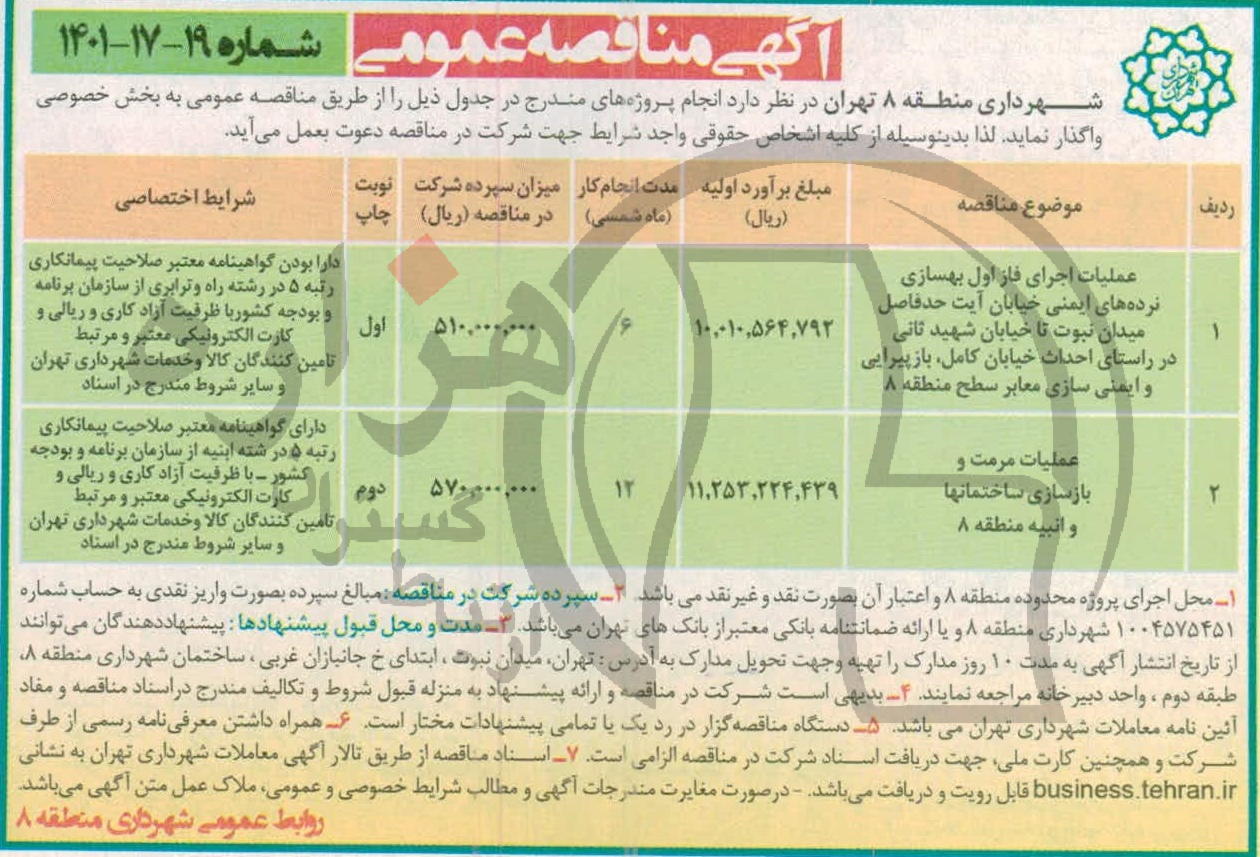 آگهی مناقصه عمومی
شماره ۱۹-۱۷-۱۴۰۱
شهرداری تهران
شهرداری منطقه ۸ تهران در نظر دارد انجام پروژه‌های مندرج در جدول ذیل را از طریق مناقصه عمومی به بخش خصوصی
واگذار نماید. لذا بدینوسیله از کلیه اشخاص حقوقی واجد شرایط جهت شرکت در مناقصه دعوت بعمل می‌آید.
ردیف
موضوع مناقصه
مبلغ برآورد اولیه
(ریال)
مدت انجام کار
(ماه شمسی)
میزان سپرده شرکت
در مناقصه (ریال)
نوبت
چاپ
شرایط اختصاصی
۱
عملیات اجرای فاز اول بهسازی
نرده‌های ایمنی خیابان آیت حدفاصل
میدان نبوت تا خیابان شهید ثانی
در راستای احداث خیابان کامل، بازپیرایی
و ایمنی سازی معابر سطح منطقه ۸
۱۰,۰۱۰,۵۶۴,۷۹۲
۶
۵۱۰,۰۰۰,۰۰۰
اول
دارا بودن گواهینامه معتبر صلاحیت پیمانکاری
رتبه ۵ در رشته راه وترابری از سازمان برنامه
و بودجه کشوربا ظرفیت آزاد کاری و ریالی و
کارت الکترونیکی معتبر و مرتبط
تامین کنندگان کالا وخدمات شهرداری تهران
و سایر شروط مندرج در اسناد
۲
عملیات مرمت و
بازسازی ساختمانها
و انبیه منطقه ۸
۱۱,۲۵۳,۲۲۴,۴۳۹
۱۲
۵۷۰,۰۰۰,۰۰۰
دوم
دارای گواهینامه معتبر صلاحیت پیمانکاری
رتبه ۵ در شته ابنیه از سازمان برنامه و بودجه
کشور ـ با ظرفیت آزاد کاری و ریالی و
کارت الکترونیکی معتبر و مرتبط
تامین کنندگان کالا وخدمات شهرداری تهران
و سایر شروط مندرج در اسناد
۱ـ محل اجرای پروژه محدوده منطقه ۸ و اعتبار آن بصورت نقد و غیرنقد می باشد. ۲ـ سپرده شرکت در مناقصه : مبالغ سپرده بصورت واریز نقدی به حساب شماره
۱۰۰۴۵۷۵۴۵۱ شهرداری منطقه ۸ و یا ارائه ضمانتنامه بانکی معتبر از بانک های تهران می‌باشد. ۳ـ مدت و محل قبول پیشنهادها : پیشنهاددهندگان می‌توانند
از تاریخ انتشار آگهی به مدت ۱۰ روز مدارک را تهیه وجهت تحویل مدارک به آدرس : تهران، میدان نبوت ، ابتدای خ جانبازان غربی ، ساختمان شهرداری منطقه ۸،
طبقه دوم ، واحد دبیرخانه مراجعه نمایند. ۴ـ بدیهی است شرکت در مناقصه و ارائه پیشنهاد به منزله قبول شروط و تکالیف مندرج دراسناد مناقصه و مفاد
آئین نامه معاملات شهرداری تهران می باشد. ۵ـ دستگاه مناقصه‌گزار در رد یک یا تمامی پیشنهادات مختار است. ۶ـ همراه داشتن معرفی‌نامه رسمی از طرف
شرکت و همچنین کارت ملی، جهت دریافت اسناد شرکت در مناقصه الزامی است. ۷ـ اسناد مناقصه از طریق تالار آگهی معاملات شهرداری تهران به نشانی
business.tehran.ir قابل رویت و دریافت می‌باشد. - درصورت مغایرت مندرجات آگهی و مطالب شرایط خصوصی و عمومی، ملاک عمل متن آگهی می‌باشد.
روابط عمومی شهرداری منطقه ۸
هزاره
گستران